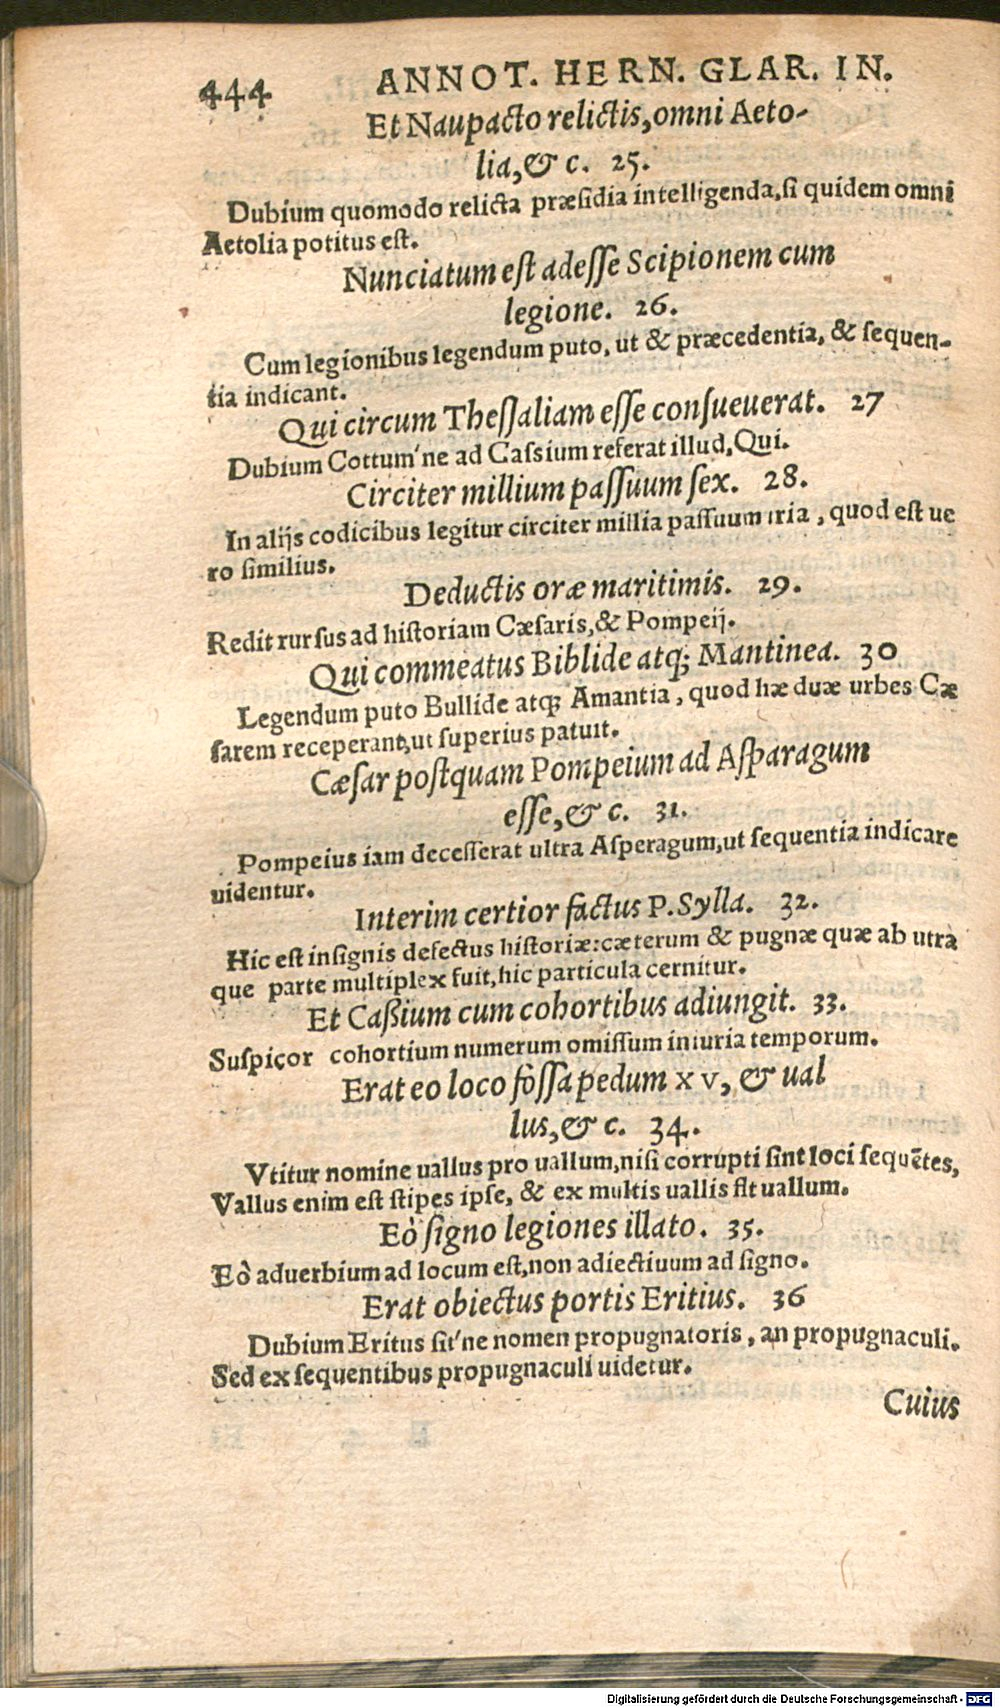 444 ANNOT. HERN. GLAR. IN.
Et Naupacto relictis, omni Aeto-
lia, & c. 25.
Dubium quomodo relicta præsidia intelligenda, si quidem omni
Aetolia potitus est.
Nunciatum est adesse Scipionem cum
legione. 26.
Cum legionibus legendum puto, ut & præcedentia, & sequen-
tia indicant.
Qui circum Thessaliam esse consueuerat. 27
Dubium Cottum'ne ad Cassium referat illud, Qui.
Circiter millium passuum sex. 28.
In alijs codicibus legitur circiter millia passuum tria, quod est ue
ro similius.
Deductis oræ maritimis. 29.
Redit rursus ad historiam Cæsaris, & Pompeij.
Qui commeatus Biblide atq; Mantinea. 30
Legendum puto Bullide atq; Amantia, quod hæ duæ urbes Cæ
sarem receperant, ut superius patuit.
Cæsar postquam Pompeium ad Asparagum
esse, & c. 31.
Pompeius iam decesserat ultra Asperagum, ut sequentia indicare
uidentur.
Interim certior factus P. Sylla. 32.
Hic est insignis defectus historiæ: cæterum & pugnæ quæ ab utra
que parte multiplex fuit, hic particula cernitur.
Et Caßium cum cohortibus adiungit. 33.
Suspicor cohortium numerum omissum iniuria temporum.
Erat eo loco fossa pedum xv, & ual
lus, & c. 34.
Vtitur nomine uallus pro uallum, nisi corrupti sint loci sequētes,
Vallus enim est stipes ipse, & ex multis uallis fit uallum.
Eò signo legiones illato. 35.
Eò aduerbium ad locum est, non adiectiuum ad signo.
Erat obiectus portis Eritius. 36
Dubium Eritus sit'ne nomen propugnatoris, an propugnaculi.
Sed ex sequentibus propugnaculi uidetur.
Cuius
Digitalisierung gefördert durch die Deutsche Forschungsgemeinschaft - DFG